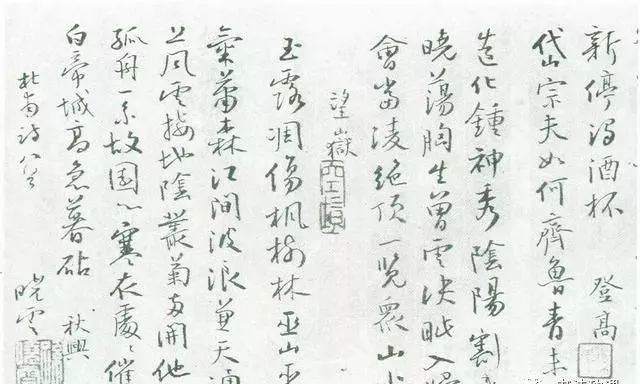 新停濁酒杯 登高
岱宗夫如何齊魯青未
造化鍾神秀陰陽割
曉蕩胸生曾雲決眦入
會當凌絕頂一覽眾山小
望嶽
玉露凋傷楓樹林巫山巫
氣蕭森江間波浪兼天
上風雲接地陰叢菊兩開他
孤舟一系故園心寒衣處〻催
白帝城高急暮砧 秋興
杜甫詩
曉雲